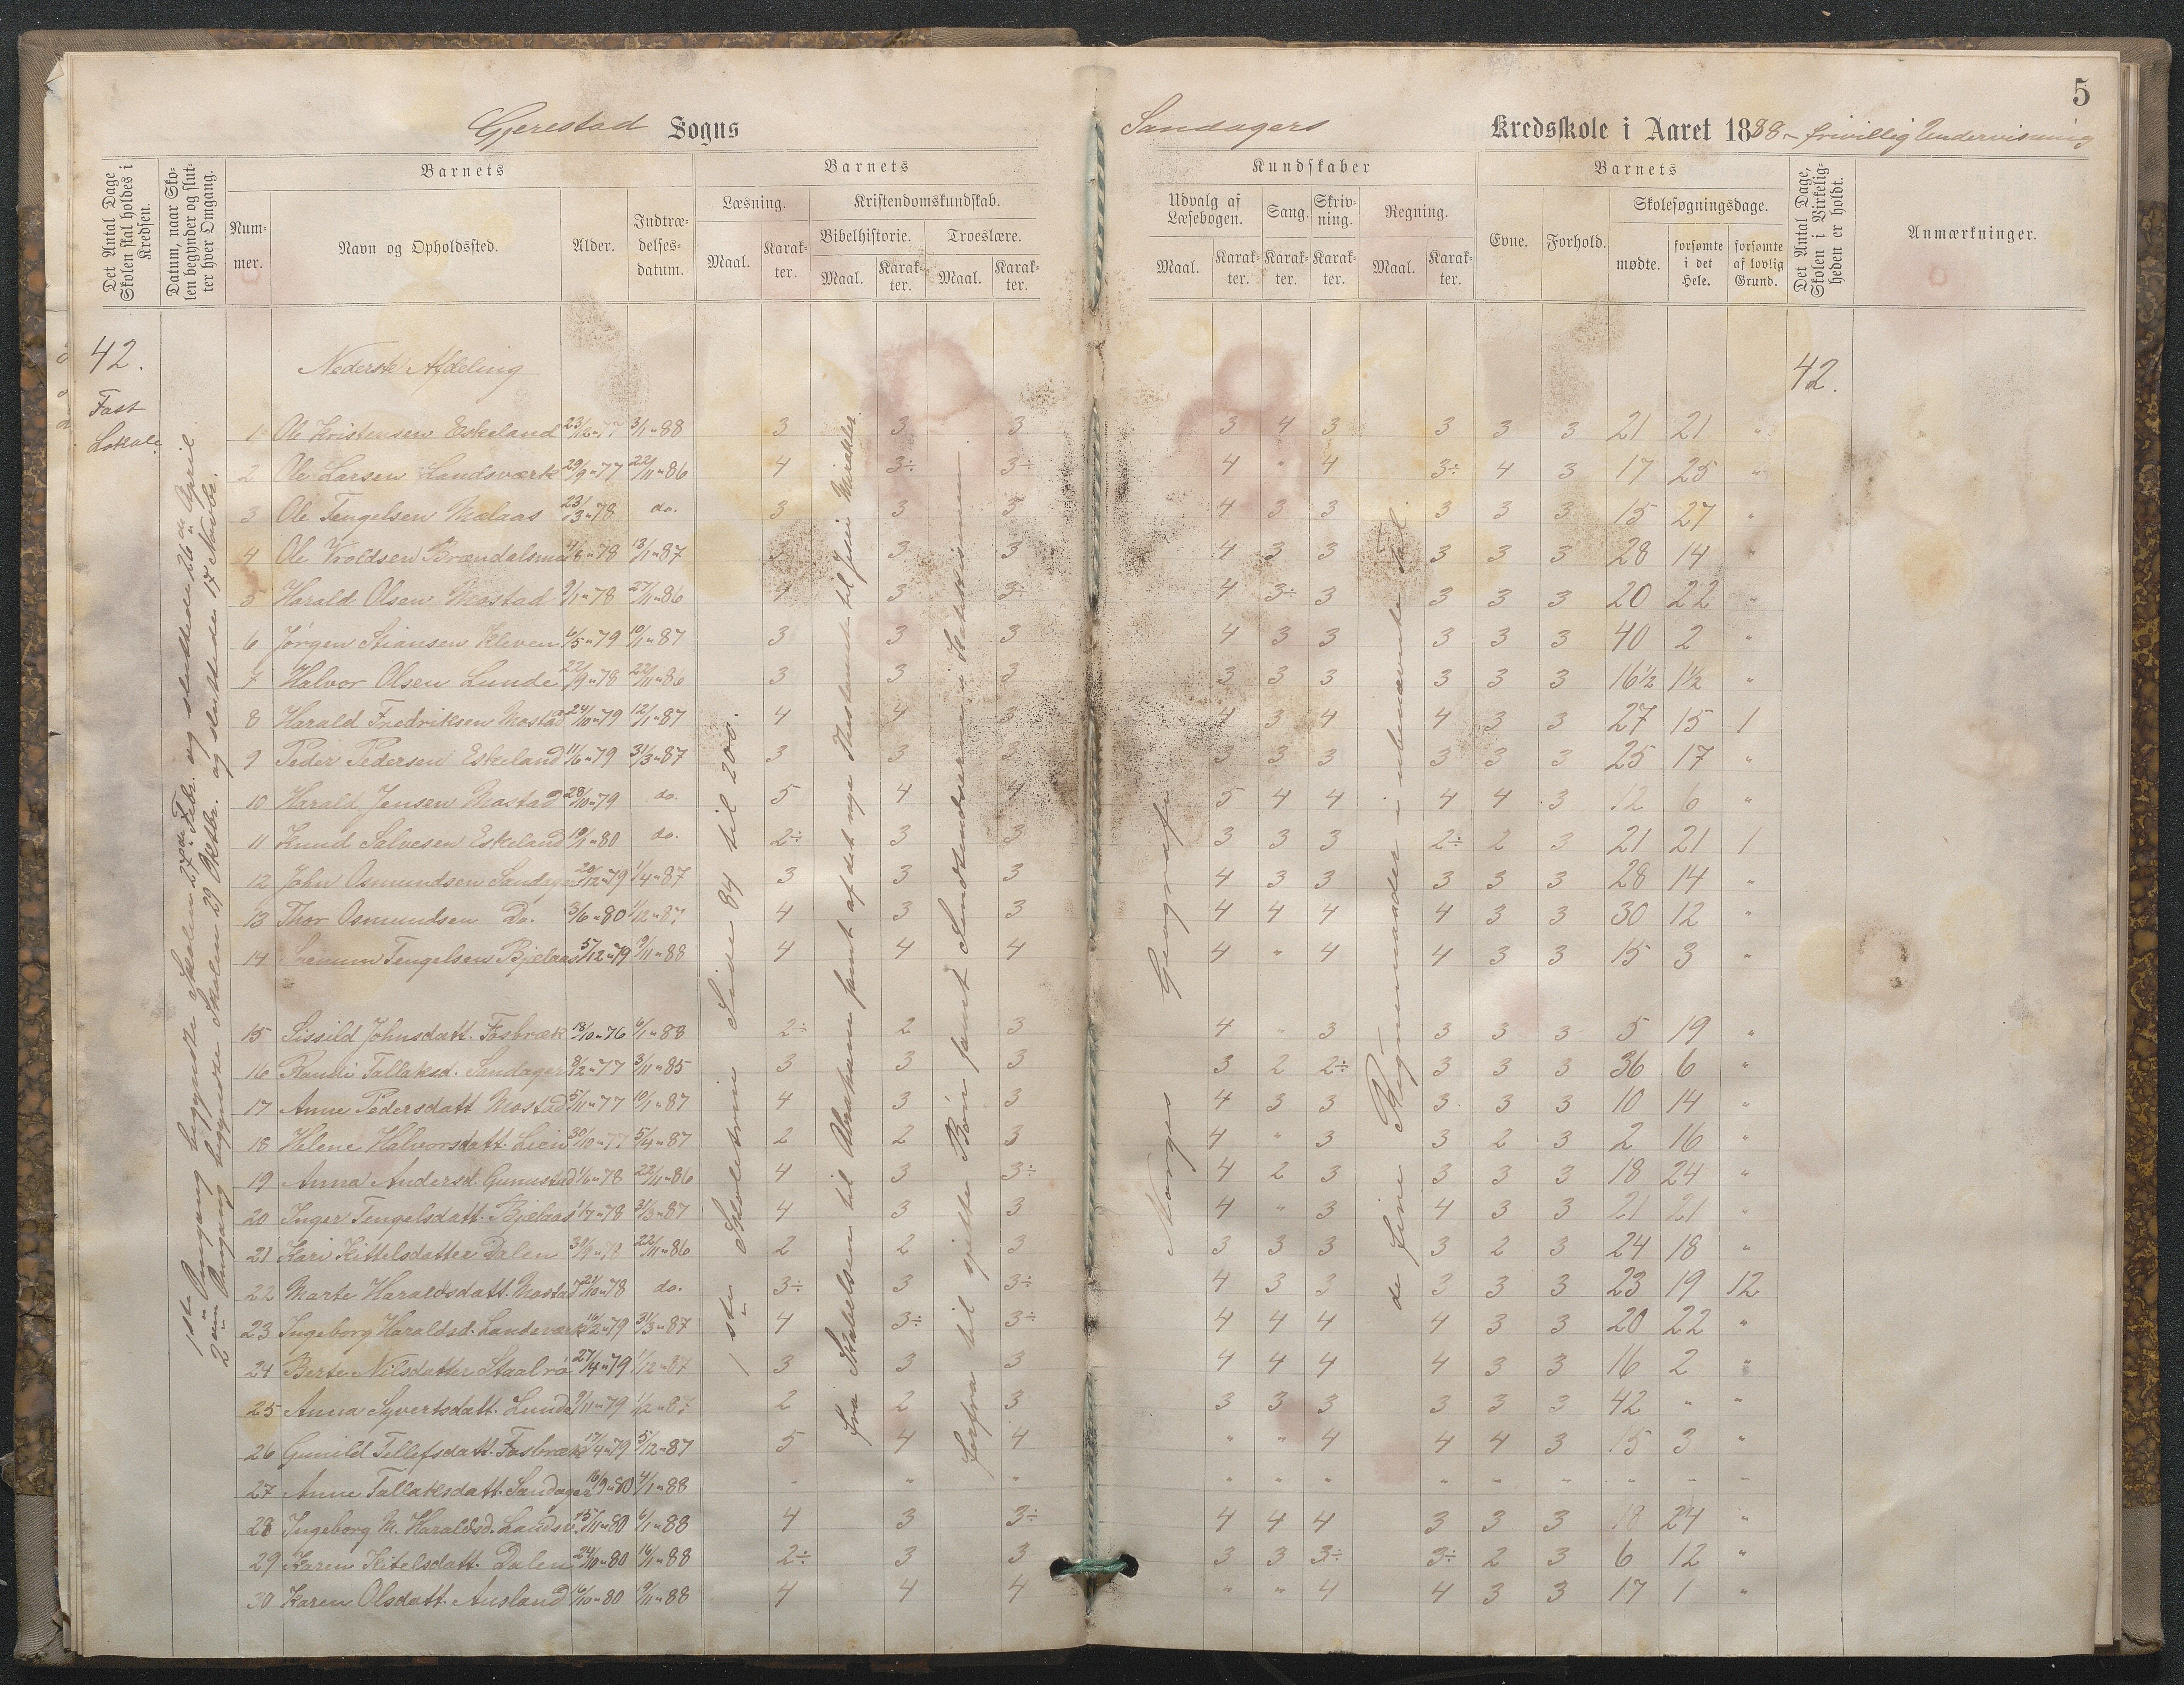 5
Gjerestad Sogns Sandagers Kredsskole i Aaret 1888 - frivillig Undervisning
Det Antal Dage Skolen skal holdes i Kredsen.
Datum, naar Skolen begynder og slutter hver Omgang.
Barnets
Nummer.
Navn og Opholdssted.
Alder.
Indtrædelsesdatum.
Barnets
Læsning.
Maal.
Karakter.
Kristendomskundskab.
Bibelhistorie.
Maal.
Karakter.
Troeslære.
Maal.
Karakter.
Kundskaber
Udvalg af Læsebogen.
Maal.
Karakter.
Sang.
Karakter.
Skrivning.
Karakter.
Regning.
Maal.
Karakter.
Barnets
Evne.
Forhold.
Skolesøgningsdage.
mødte.
forsømte i det Hele.
forsømte af lovlig Grund.
Det Antal Dage, Skolen i Virkeligheden er holdt.
Anmærkninger.
42. Nederste Afdeling 42.
Fast
Lokale.
1ste Omgang begyndte Skolen 27de Febr. og sluttede den 26de April.
2den Omgang begyndte Skolen 29 Oktbr. og sluttede 17 Novbr.
1ste Skoletrin Side 84 til 200.
fra Skabelsen til Abraham samt af det nye Testamente til Jesu Mirakler
forfra til sjette Bøn samt Sendetordene i Katekismen
Norges Geografi
de fire Regnemaader i ubenævnte Tal
1 Ole Kristensen Eskeland 23/12 77 3/1 88 3 3 3 3 4 3 3 3 3 21 21 "
2 Ole Larsen Landsværk 29/9 77 22/11 86 4 3÷ 3÷ 4 " 4 3÷ 4 3 17 25 "
3 Ole Tengelsen Mælaas 23/3 78 do. 3 3 3 4 3 3 3 3 3 15 27 "
4 Ole Vroldsen Brændalsmo 78 13/1 87 3 3 3 4 3 3 3 3 3 28 14 "
5 Harald Olsen Mostad 9/1 78 27/11 86 4 3 3÷ 4 3÷ 3 3 3 3 20 22 "
6 Jørgen Stiansen Kleven 6/5 79 10/1 87 3 3 3 4 3 3 3 3 3 40 2 "
7 Halvor Olsen Lunde 22/9 78 22/11 86 3 3 3 3 3 3 3 3 3 16½ 1½ "
8 Harald Fredriksen Mostad 24/10 79 12/1 87 4 4 3 4 3 4 4 3 3 27 15 1
9 Peder Pedersen Eskeland 11/6 79 31/3 87 3 3 3 3 3 3 3 3 3 25 17 "
10 Harald Jensen Mostad 28/10 79 do. 5 4 4 5 4 4 4 4 3 12 6 "
11 Knud Salvesen Eskeland 19/1 80 do. 2÷ 3 3 3 3 3 2÷ 2 3 21 21 1
12 John Osmundsen Sandager 20/12 79 1/4 87 3 3 3 4 3 3 3 3 3 28 14 "
13 Thor Osmundsen Do. 3/6 80 1/12 87 4 3 3 4 4 4 4 3 3 30 12 "
14 Tengelsen Bjelaas 5/12 79 19/11 88 4 4 4 4 " 4 4 3 3 15 3 "
15 Sissild Johnsdatt. Fosbræk 18/10 76 6/1 88 2÷ 2 3 4 " 3 3 3 3 5 19 "
16 Randi Tallaksd. Sandager 8/2 77 3/11 85 3 3 3 3 2 2÷ 3 3 3 36 6 "
17 Anne Pedersdatt Mostad 5/11 77 10/1 87 4 3 3 4 3 3 3 3 3 10 14 "
18 Helene Halvorsdatt. Lien 30/10 77 5/4 87 2 2 3 4 " 3 3 2 3 2 16 "
19 Anna Andersd. Gunnestad 1/6 78 22/11 86 4 3 3÷ 4 2 3 3 3 3 18 24 "
20 Inger Tengelsdatt. Bjelaas 1/7 78 31/3 87 4 3 3 4 " 3 4 3 3 21 21 "
21 Kari Kittelsdatter Dalen 30/9 78 22/11 86 2 2 3 3 3 3 3 2 3 24 18 "
22 Marte Haraldsdatt. Mostad 21/10 78 do. 3÷ 3 3÷ 4 3 3 3 3 3 23 19 12
23 Ingeborg Haraldsd. Landsværk 16/2 79 31/3 87 4 3÷ 3÷ 4 4 4 4 3 3 20 22 "
24 Berte Nilsdatter Staalrø 27/4 79 1/12 87 3 3 3 4 4 4 4 3 3 16 2 "
25 Anna Syvertsdatt. Lunde 9/11 79 1/2 87 2 2 3 3 3 3 3 3 3 42 " "
26 Gunild Tellefsdatt. Fosbræk 17/4 79 5/12 87 5 4 4 " " 4 4 4 3 15 3 "
27 Anne Tallaksdatt. Sandager 16/9 80 4/1 88 " " " " " " " " " " " "
28 Ingeborg M. Haraldsd. Landsv. 15/11 80 6/1 88 4 3 3÷ 4 4 4 3 3 3 18 24 "
29 Karen Kitelsdatt. Dalen 24/10 80 16/1 88 2÷ 3 3 3 3 3÷ 3÷ 2 3 6 12 "
30 Karen Olsdatt. Ausland 16/10 80 19/11 88 4 4 4 " " 4 4 3 3 17 1 "